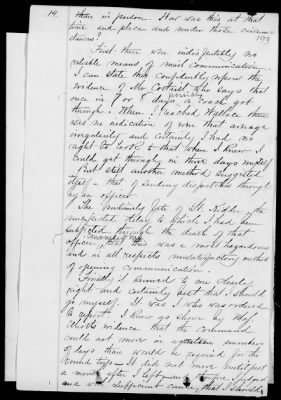 19.
than in person. How was this, at that
time and place and under those circum-
stances? 193
First there were indisputably no
reliable means of mail communication.
I can state this confidently upon the
evidence of Mr. Cottrill who says that
once in 7 or 8 days, possibly a coach got
through. When I reached Wallace there
was no indication of even that average
regularity and certainly I had no
right to look to that when I knew I
could get through in three days myself.
But still another method suggested
itself – that of sending despatches through
by an officer.
The melancholy fate of Lt. Kidder of the
unexpected delay to which I had been
subjected through the death of that
officer convinced me that this was a most hazardous
and in all respects unsatisfactory method
of opening communication.
Finally, it seemed to me clearly
right and certainly best that I should
go myself. It was I who was ordered
to report. I knew as shown by Maj.
Elliott's evidence that the command
could not move in a number
of days than would be required for the
round trip – it did not move until just
a month after I left
and was sufficient that I should